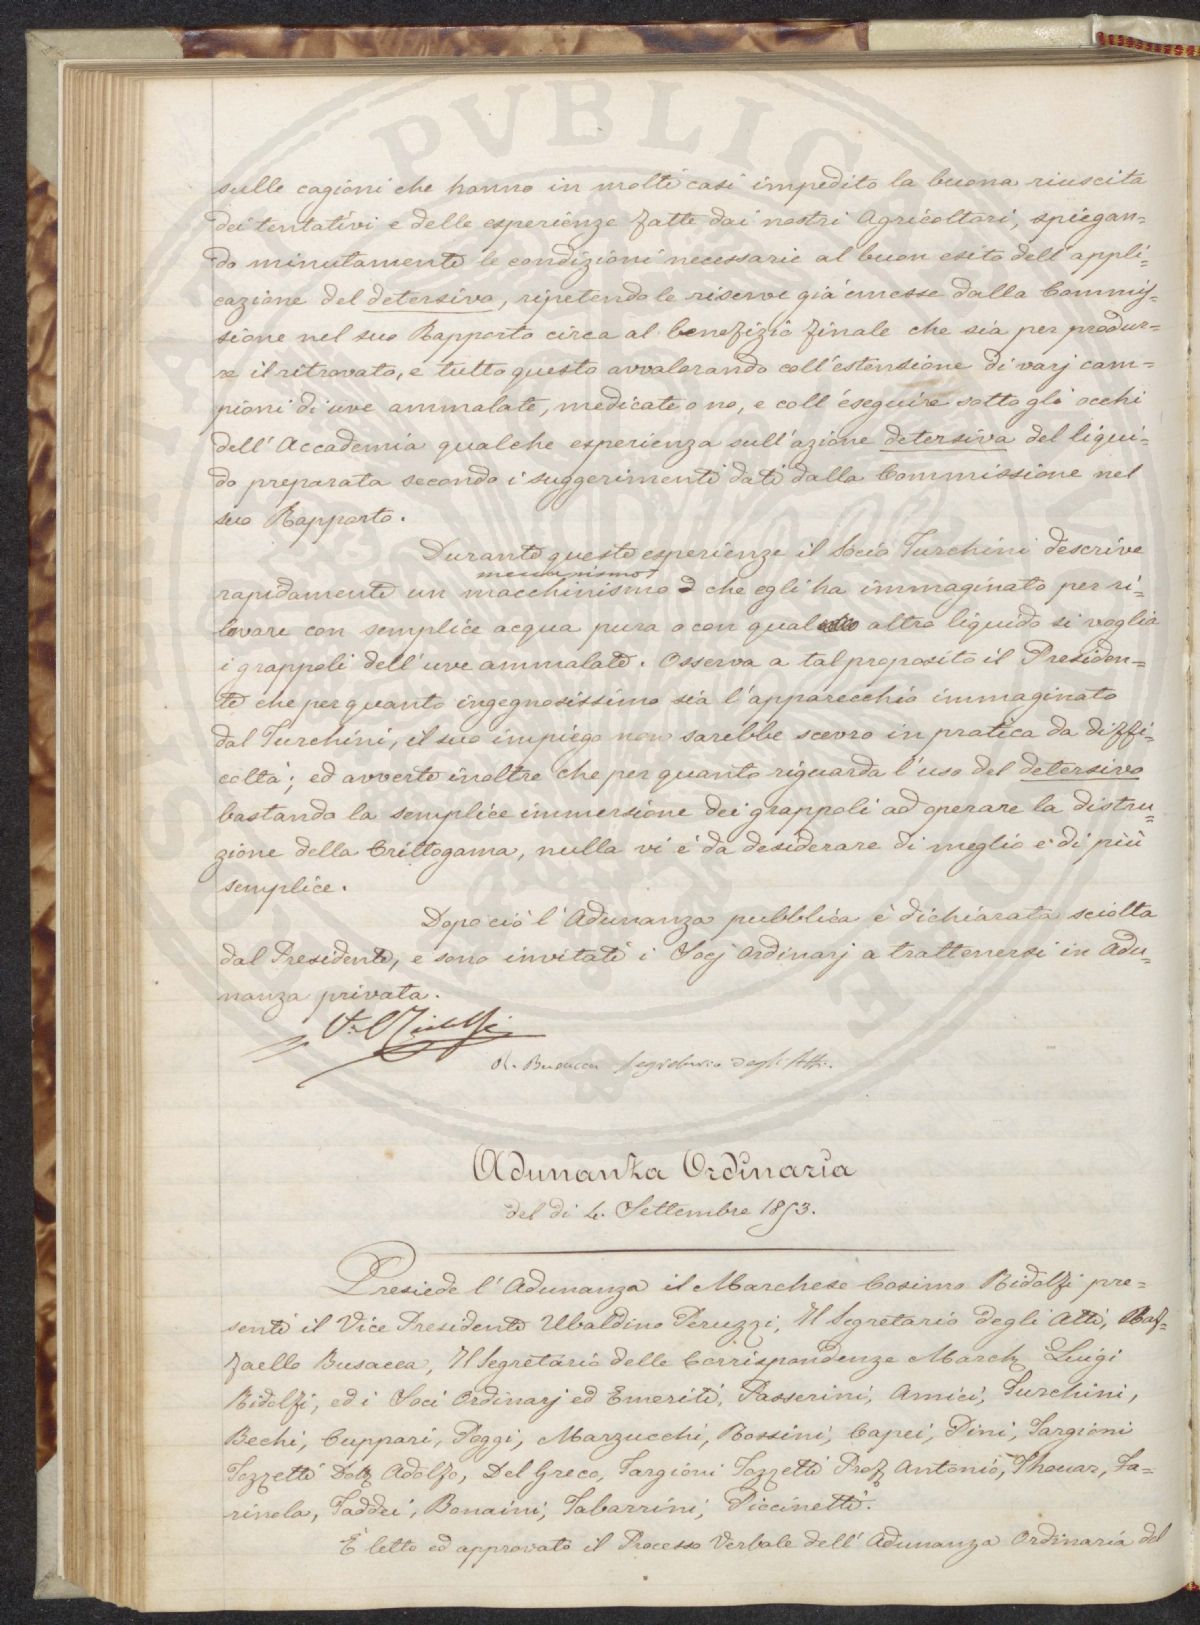 sulle cagioni che hanno in molti casi impedito la buona riuscita
dei tentativi e delle esperienze fatte dai nostri Agricoltori, spiegan=
do minutamente le condizioni necessarie al buon esito dell'appli=
cazione del detersivo, ripetendo le riserve già emesse dalla Commis=
sione nel suo Rapporto circa al benefizio finale che sia per produr=
re il ritrovato, e tutto questo avvalorando coll'estensione di varj cam=
pioni di uve ammalate, medicate o no, e coll'eseguire sotto gli occhi
dell'Accademia qualche esperienza sull'azione detersiva del liqui=
do preparata secondo i suggerimenti dati dalla Commissione nel
suo Rapporto.
Durante queste esperienze il Socio Turchini descrive
meccanismo
rapidamente un macchinismo che egli ha immaginato per ri=
lavare con semplice acqua pura o con qual altro liquido si voglia
i grappoli dell'uve ammalate. Osserva a tal proposito il Presiden=
te che per quanto ingegnosissimo sia l'apparecchio immaginato
dal Turchini, il suo impiego non sarebbe scevro in pratica da diffi=
coltà; ed avverte inoltre che per quanto riguarda l'uso del detersivo
bastando la semplice immersione dei grappoli ad operare la distru=
zione della Crittogama, nulla vi è da desiderare di meglio e di più
semplice.
Dopo ciò l'Adunanza pubblica è dichiarata sciolta
dal Presidente, e sono invitati i Socj Ordinarj a trattenersi in Adu=
nanza privata.
R. Busacca Segretario degli Atti.
Adunanza Ordinaria
del dì 4. Settembre 1853.
Presiede l'Adunanza il Marchese Cosimo Ridolfi pre=
senti il Vice Presidente Ubaldino Peruzzi, Il Segretario degli Atti, Raf=
faello Busacca, Il Segretario delle Corrispondenze March. Luigi
Ridolfi, ed i Soci Ordinarj ed Emeriti, Passerini, Amici, Turchini,
Bechi, Cuppari, Poggi, Marzucchi, Rossini, Capei, Pini, Targioni
Tozzetti Dott. Adolfo, Del Greco, Targioni Tozzetti Prof. Antonio, Thouar, Fa=
rinola, Taddei, Bonaini, Tabarrini, Piccinetti.
È letto ed approvato il Processo Verbale dell'Adunanza Ordinaria del